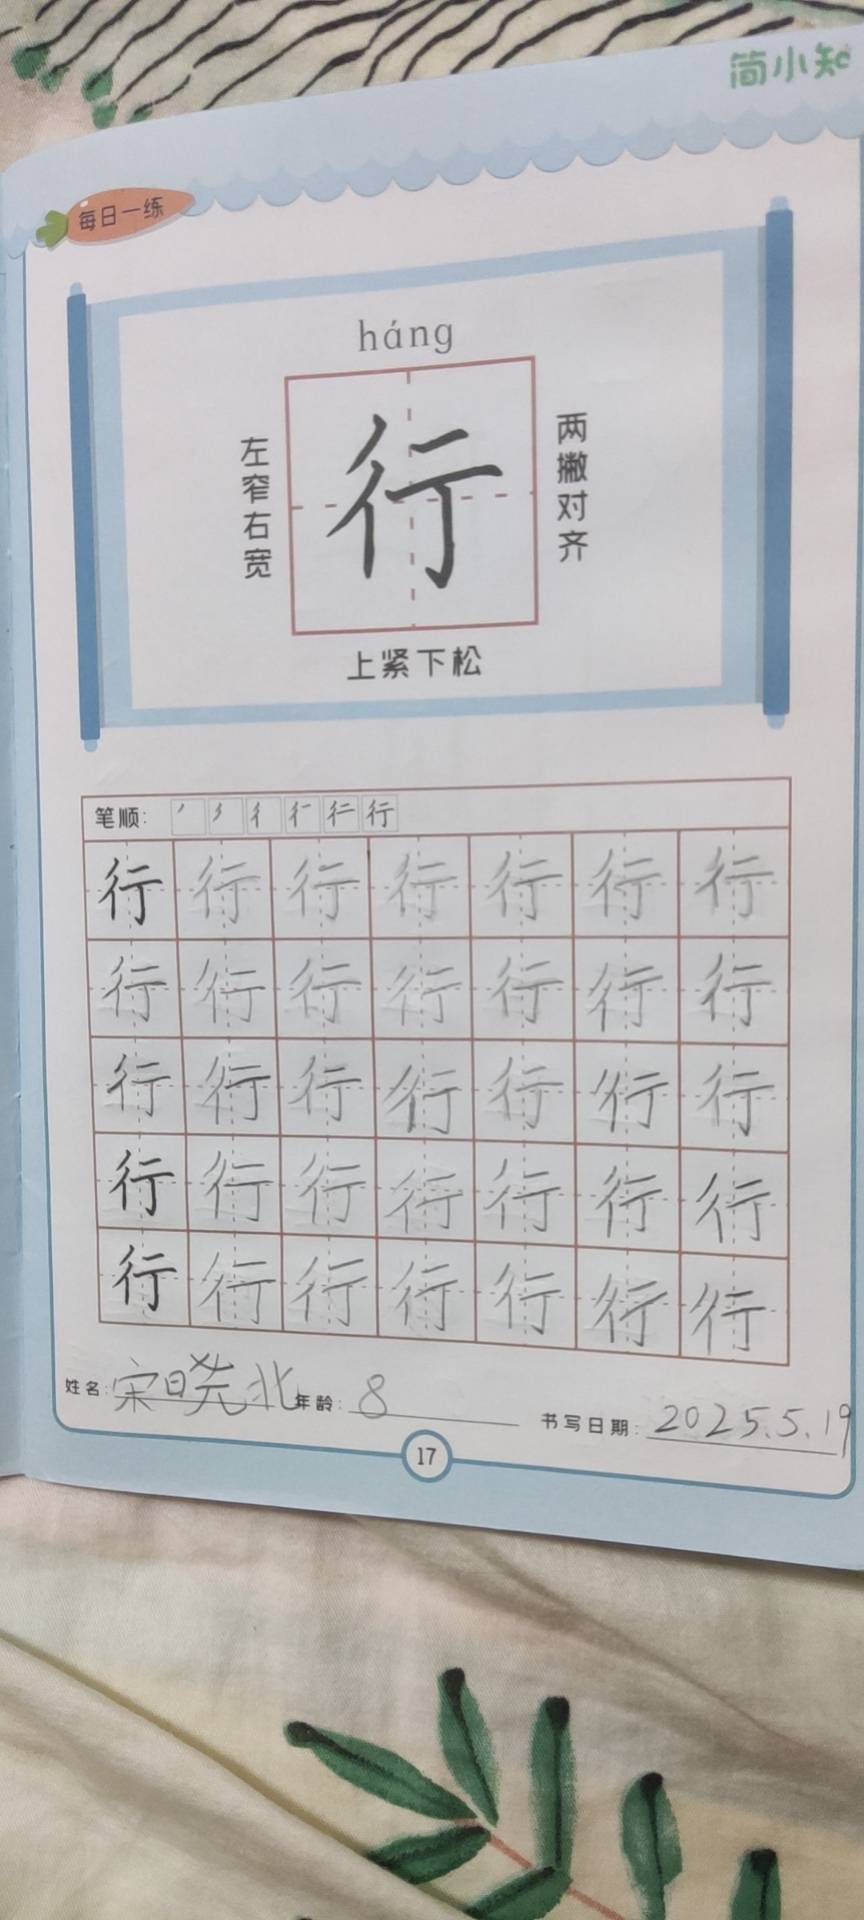 简小知
每日一练
háng
行
左窄右宽
两撇对齐
上紧下松
笔顺: 丿 彳 行
行 行 行 行 行 行 行
行 行 行 行 行 行 行
行 行 行 行 行 行 行
行 行 行 行 行 行 行
行 行 行 行 行 行 行
姓名: 宋晓北 年龄: 8 书写日期: 2025.5.19
17